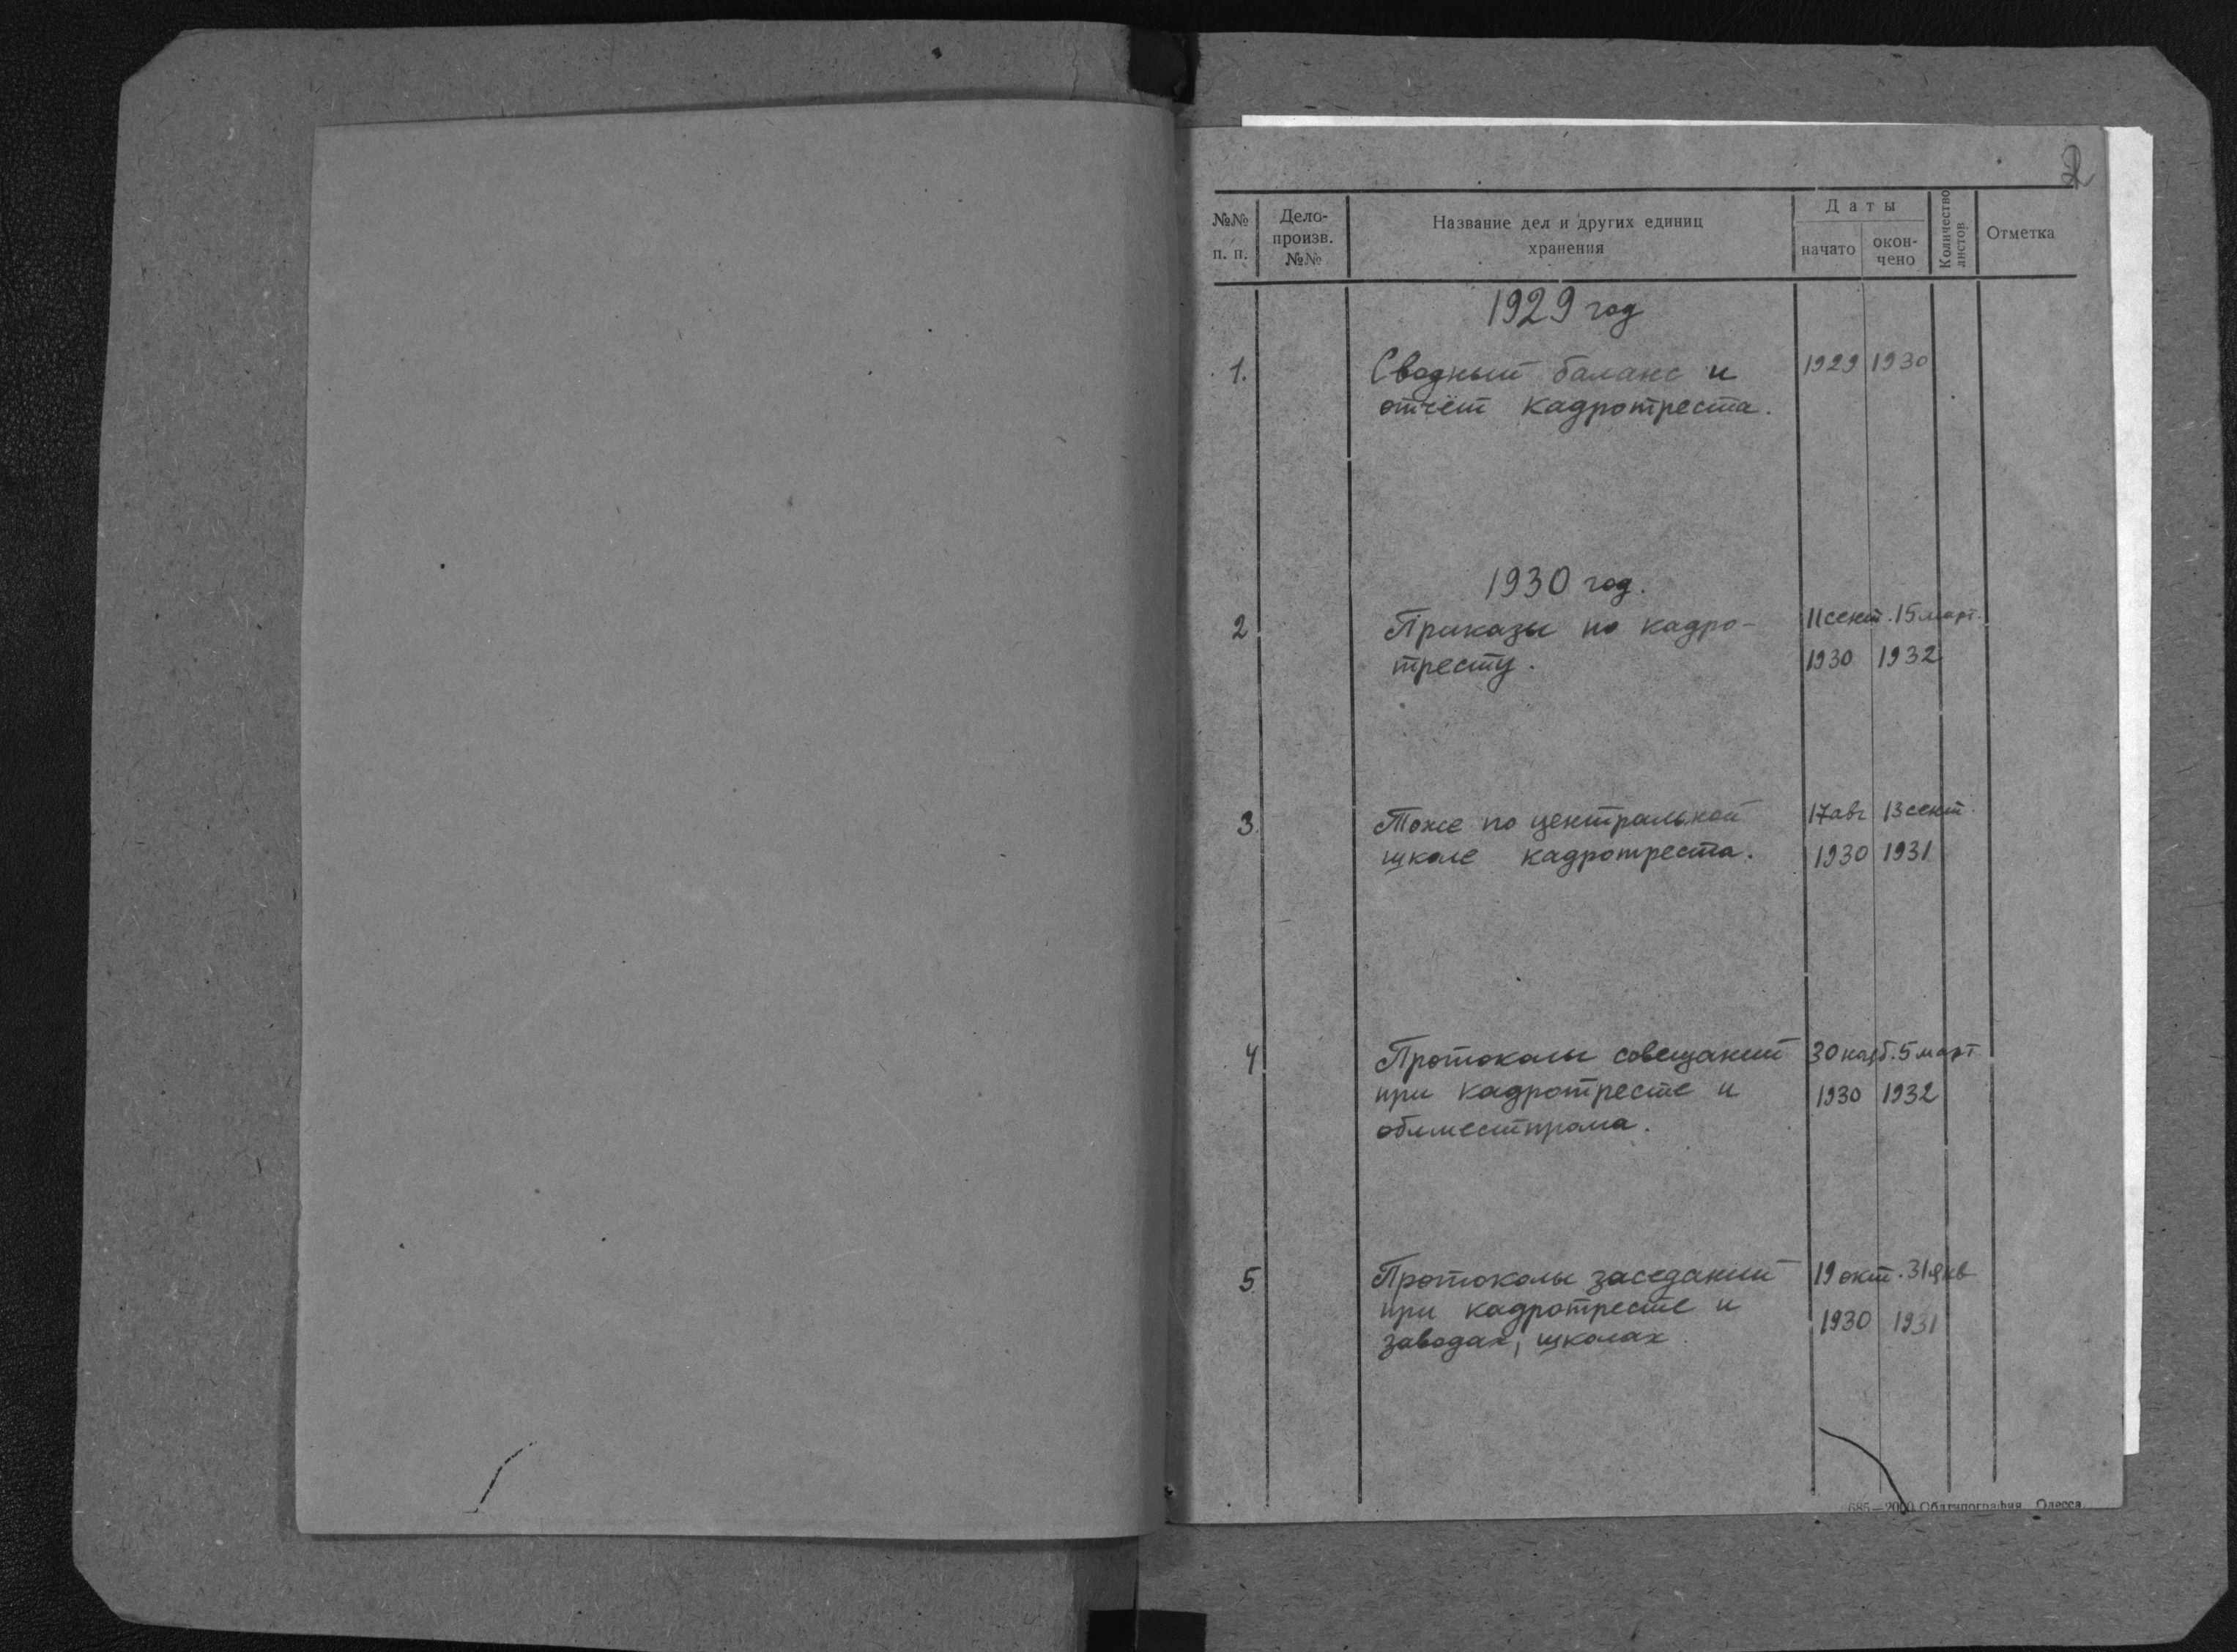 2
№№ п. п.
Дело-
произв.
№№
Название дел и других единиц
хранения
Даты
начато
окон-
чено
Количество
листов
Отметка
1929 год
1. Сводный баланс и 1929 1930
отчёт кадротреста.
1930 год.
2 Приказы по кадро- 11 сент. 15 март.
тресту. 1930 1932
3 Тоже по центральной 17 авг 13 сент.
школе кадротреста. 1930 1931
4 Протоколы совещаний 30 нояб. 5 март
при кадротресте и 1930 1932
облместпрома.
5 Протоколы заседаний 19 окт. 31 янв
при кадротресте и 1930 1931
заводах, школах.
685—2000 Облтипография Одесса